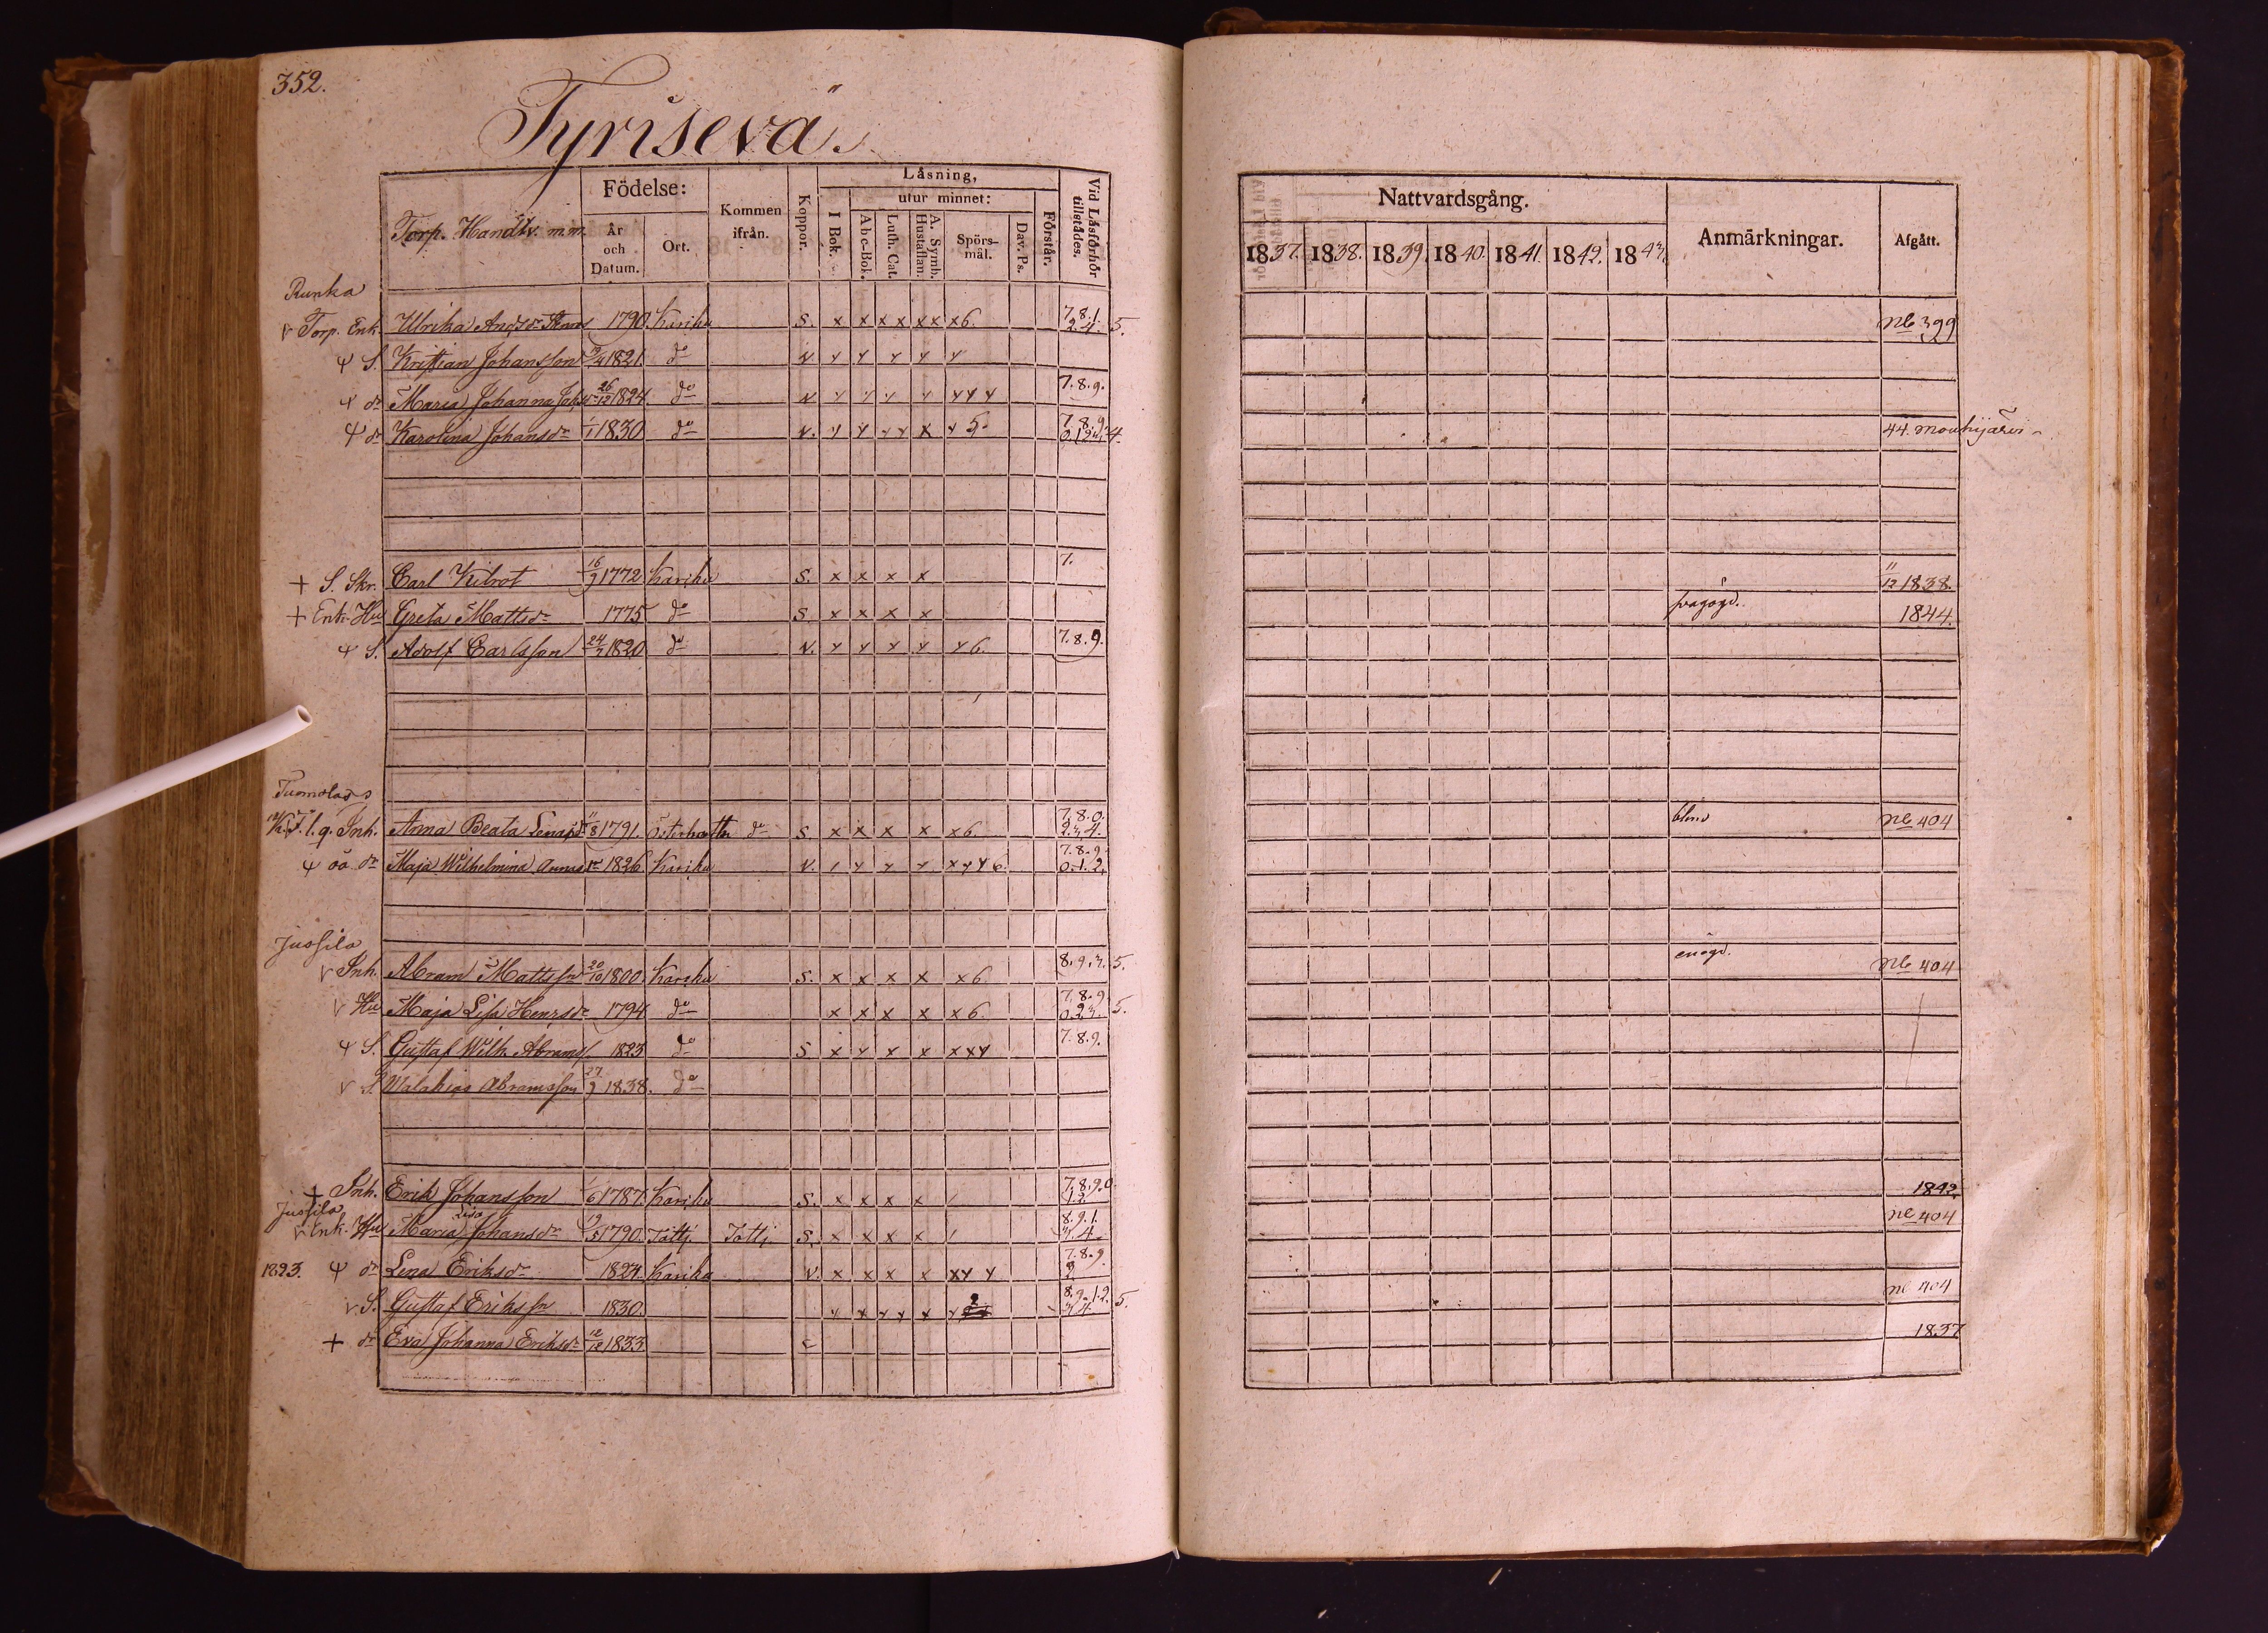 352.
Tyrisevä.
Torp. Handtv. m.m.
Födelse:
År och Datum.
Ort.
Kommen ifrån.
Koppor.
Läsning,
I Bok.
utur minnet:
Abc-Bok.
Luth. Cat.
A. Symb. Hustaflan.
Spörsmål.
Dav. Ps.
Förstår.
Vid Läsförhör tillstädes.
Nattvardsgång.
1837. 1838. 1839. 1840. 1841. 1842. 1843.
Anmärkningar.
Afgått.
Runka
Torp. Enk. Ulrika 1790. Kariku S. x x x x x x x 6. 7.8.1. 2.4. 5. 399
S. Kristian Johansson 1821. do
dr Maria Johanna 26/12 1824. do 7.8.9.
dr Karolina Johansdr 1/1 1830 do 7.8.9. 44. Mouhijärvi
+ S. Skr. Carl 16/9 1772. Kariku S. x x x x 7. 11/12 1838.
+ Enk. Hu Greta Mattsdr 1775 do S. x x x x 1844.
S. Adolf Carlsson 24/7 1820. do 7.8.9.
Tuomolas
Inh. Anna Beata 1791. do S. x x x x x 6. 7.8.0. 2.3.4. blind 404
dr Maja Wilhelmina 1826. Kariku 7.8.9. 0.1.2.
Jussila
Inh. Abram Mattsson 20/10 1800. Kariku S. x x x x x 6. 8.9.3. 5. enögd. 404
Hu Maja Lisa Henrsdr 1794 do x x x x x 6. 7.8.9. 0.2.3. 5.
S. Gustaf Wilh. Abramss. 1823 do S. 7.8.9.
S. Abramsson 27/9 1838. do
+ Inh. Erik Johansson 1/6 1787. Kariku S. x x x x 7.8.9.0. 1.2. 1842.
Jussila
Enk. Hu Maria Lisa Johansdr 19/5 1790. S. x x x x 8.9.1. 3.4. 404
1823. dr Lena Eriksdr 1824. Kariku 7.8.9.
S. Gustaf Eriksson 1830. 8.9.1.2. 3.4. 5. 404
+ dr Eva Johanna Eriksdr 12/12 1833 1837